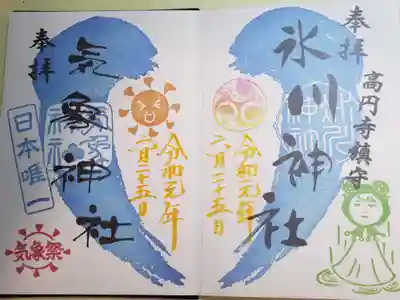 奉拝
高円寺鎮守
氷川神社
令和元年
六月二十五日
奉拝
気象神社
日本唯一
令和元年
六月二十五日
気象祭